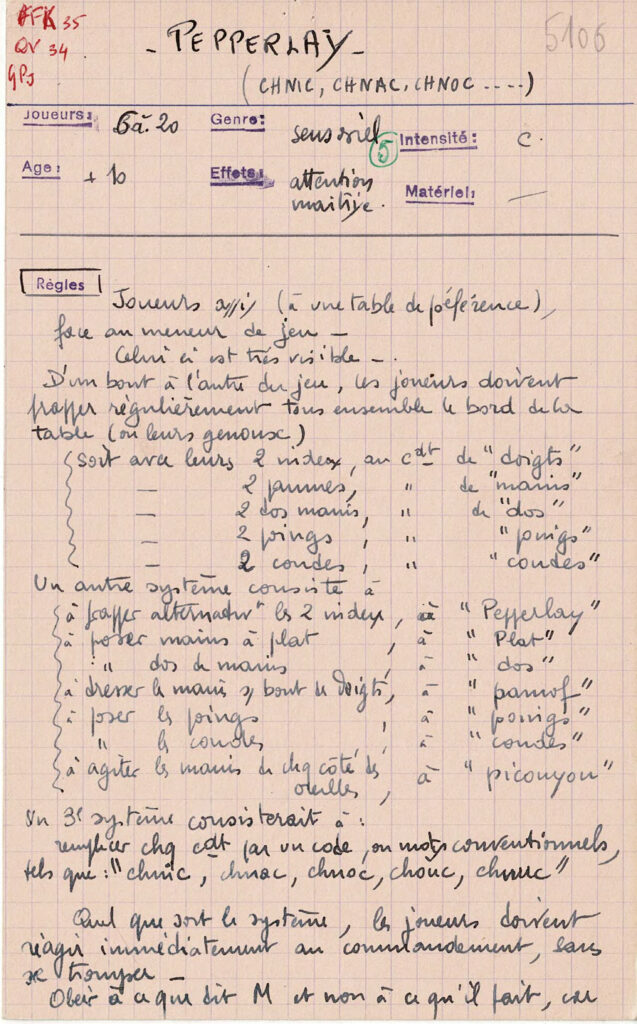 AFK 35
QV 34
GPJ
5106
- PEPPERLAY -
( CHNIC, CHNAC, CHNOC .....)
Joueurs: 6 à 20 Genre: sensoriel 5 Intensité: C.
Age: + 10 Effets: attention maîtrise. Matériel: —
Règles
Joueurs assis (à une table de préférence),
face au meneur de jeu —
Celui ci est très visible —.
D'un bout à l'autre du jeu, les joueurs doivent
frapper régulièrement tous ensemble le bord de la
table (ou leurs genoux)
soit avec leurs 2 index, au cdt de "doigts"
— 2 paumes, " de "mains"
— 2 dos mains, " de "dos"
— 2 poings, " "poings"
— 2 coudes, " "coudes"
Un autre système consiste à
à frapper alternativt les 2 index, à "Pepperlay"
à poser mains à plat, à "Plat"
" dos de mains, à "dos"
à dresser les mains s/ bout de doigts, à "pamof"
à poser les poings, à "poings"
" les coudes, à "coudes"
à agiter les mains de chq côté des oreilles, à "picouyou"
Un 3e système consisterait à :
remplacer chq cdt par un code, ou mots conventionnels,
tels que : "chnic, chnac, chnoc, chouc, chnuc"
Quel que soit le système, les joueurs doivent
réagir immédiatement au commandement, sans
se tromper —
Obéir à ce que dit M et non à ce qu'il fait, car